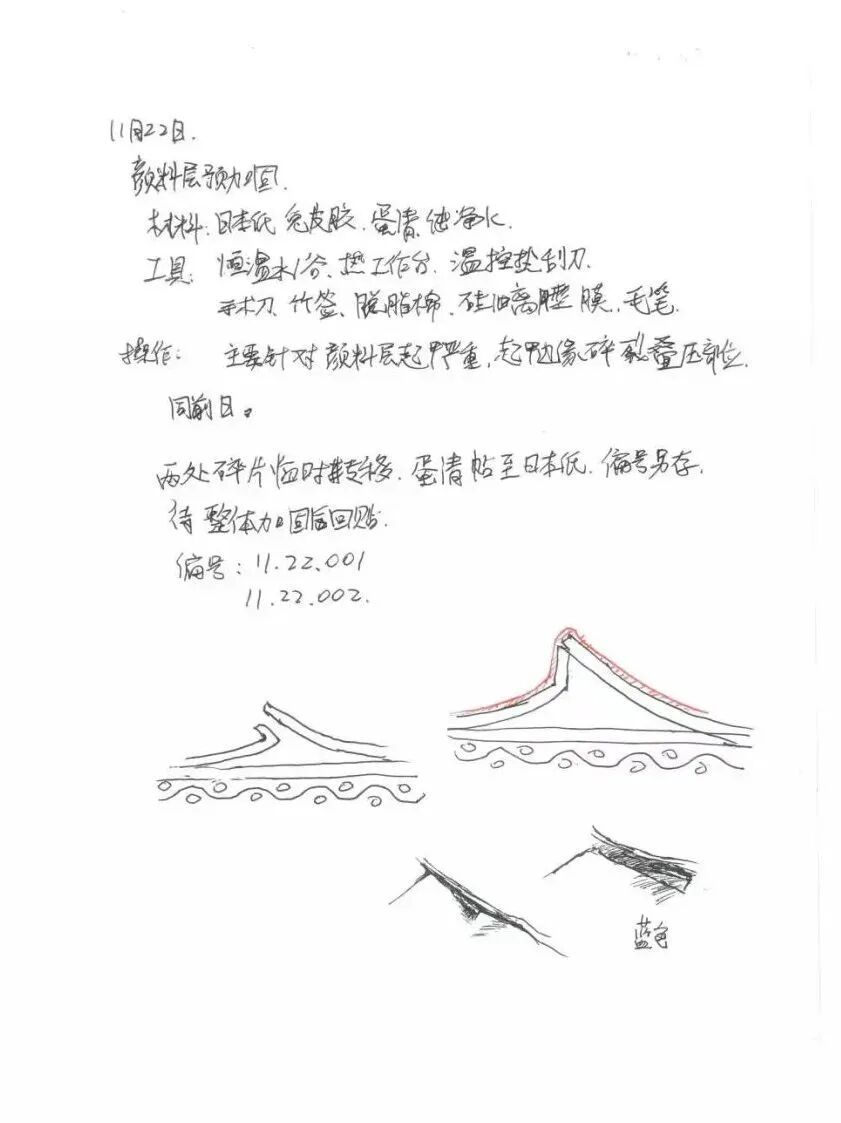 11月22日.
颜料层预加固.
材料:日本纸 兔皮胶.蛋清.纯净水.
工具: 恒温水浴、热工作台. 温控烫刮刀.
手术刀、竹签、脱脂棉、硅油离型膜、毛笔.
操作: 主要针对颜料层起甲严重,起甲边缘碎裂叠压部位.
同前日。
两处碎片临时转移.蛋清帖至日本纸.编号另存.
待整体加固后回贴.
编号:11.22.001
11.22.002.
蓝色